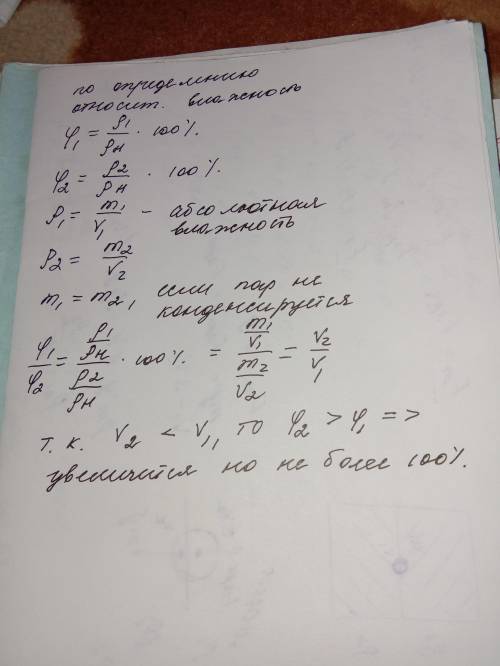 по определению
относит. влажность
φ₁ = ρ₁/ρн · 100%.
φ₂ = ρ₂/ρн · 100%.
ρ₁ = m₁/V₁ – абсолютная влажность
ρ₂ = m₂/V₂
m₁ = m₂, если пар не конденсируется
φ₁/φ₂ = (ρ₁/ρн)/(ρ₂/ρн) · 100%. = (m₁/V₁)/(m₂/V₂) = V₂/V₁
т. к. V₂ < V₁, то φ₂ > φ₁ =>
увеличится но не более 100%.